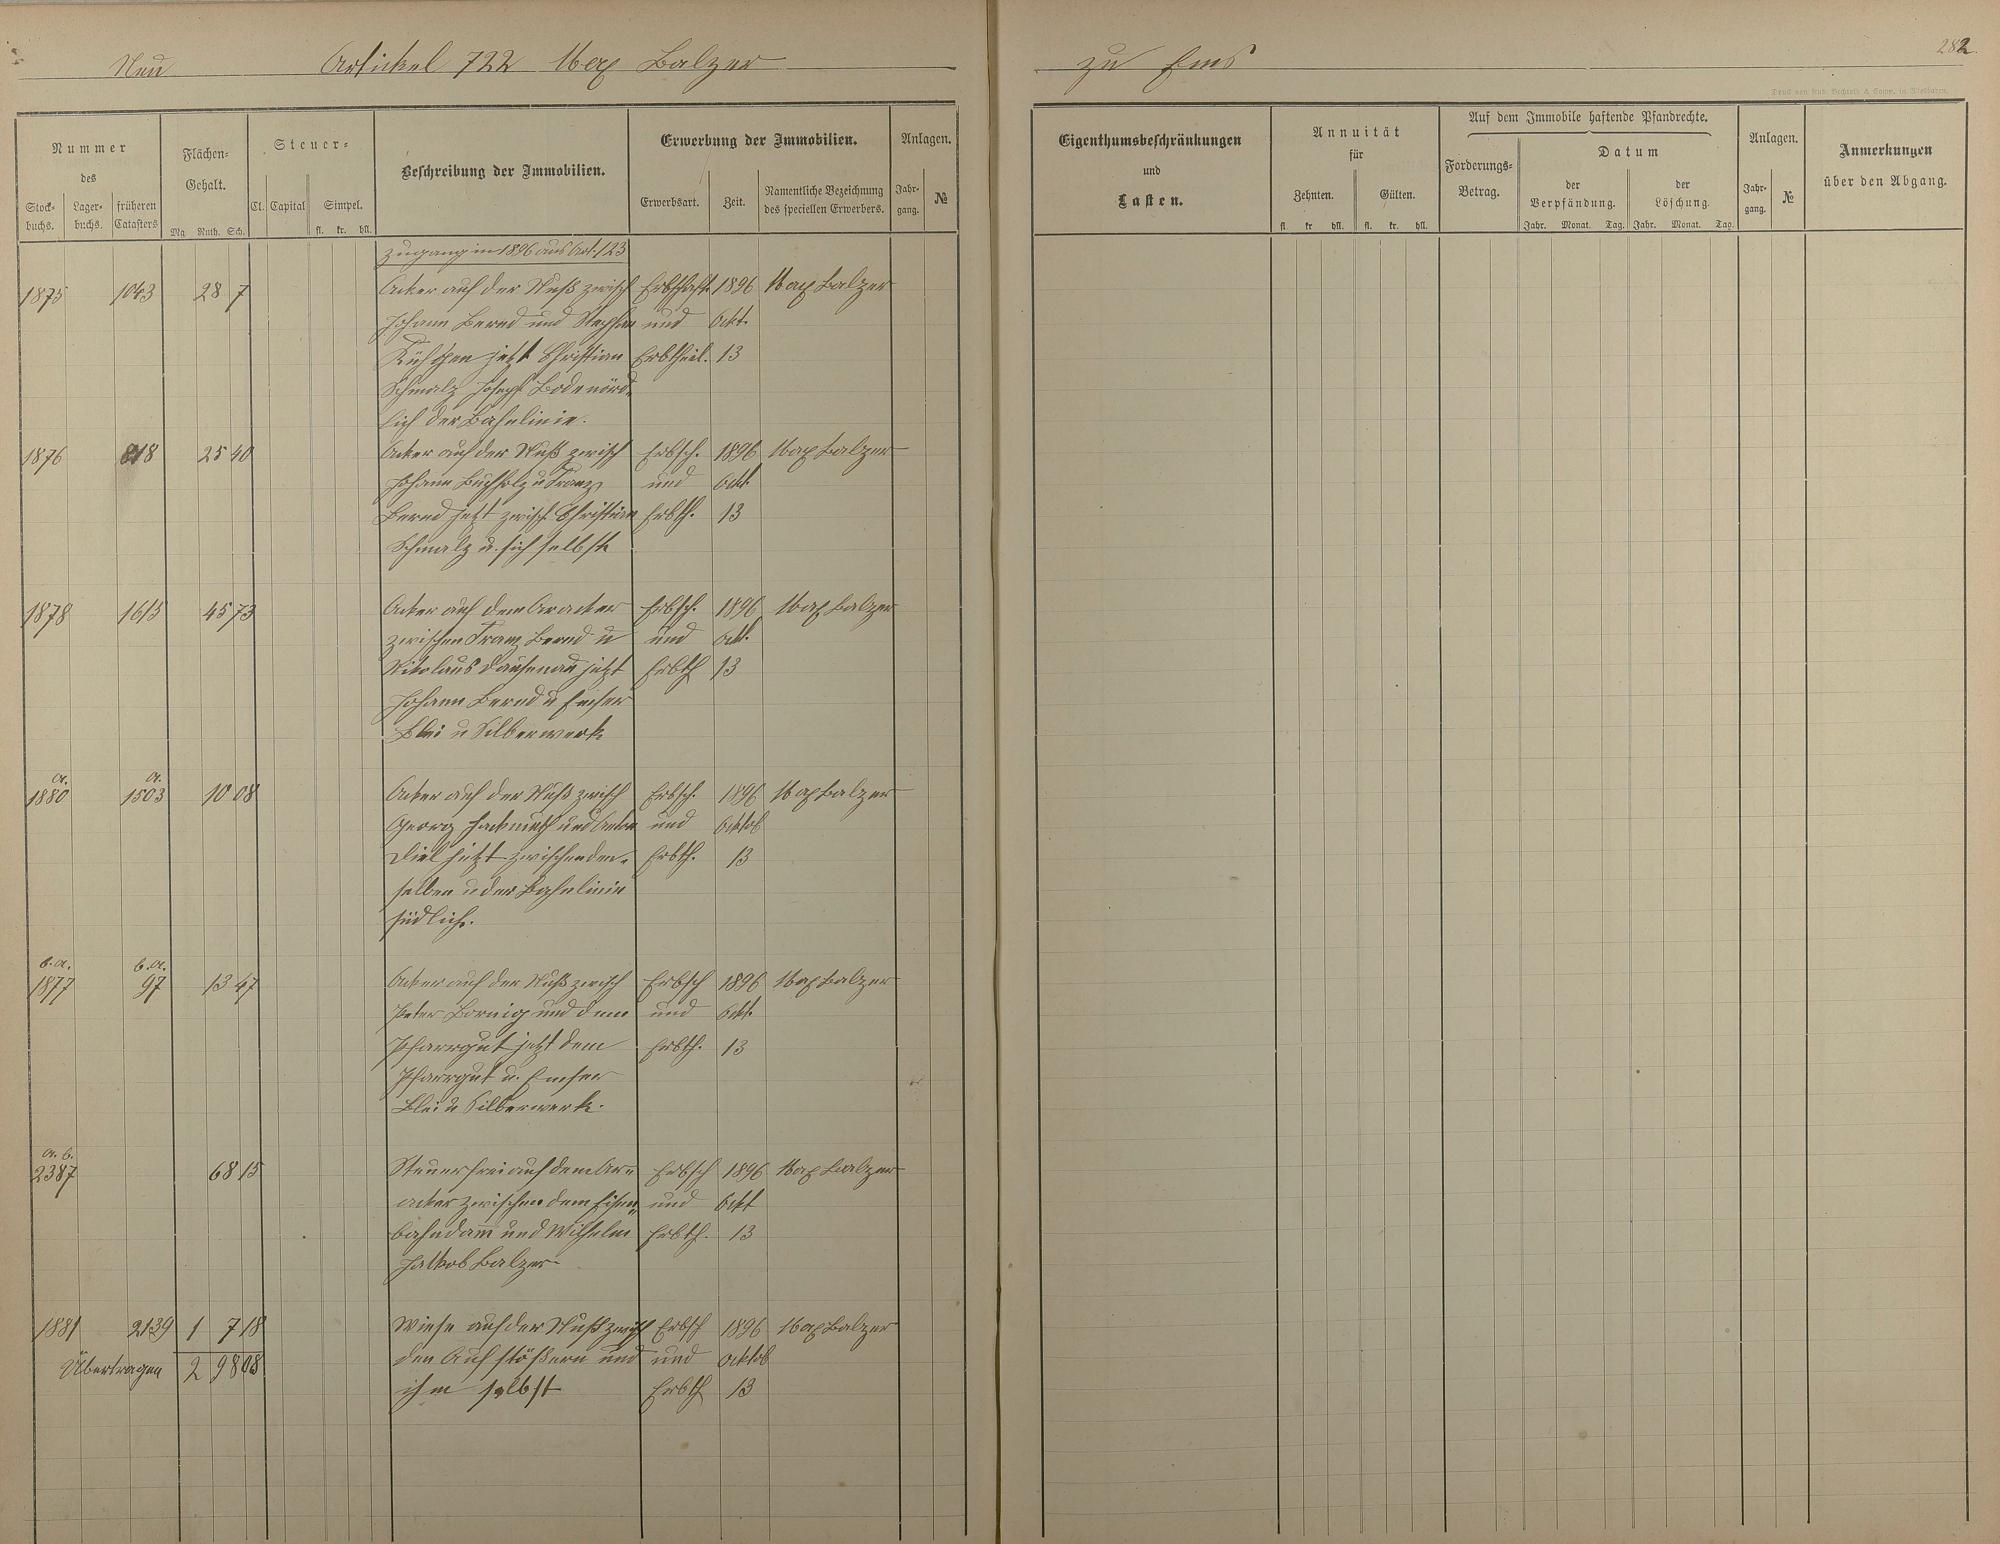 Neu Artickel 722 Max Balzer
zu Ems
282
Druck von Rud. Bechtold & Comp. in Wiesbaden.
Nummer des
Stock-buchs. Lager-buchs. früheren Catasters
Flächen-Gehalt.
Mg. Ruth. Sch.
Steuer-
Cl. Capital Simpel.
fl. kr. hll.
Beschreibung der Immobilien.
Erwerbung der Immobilien.
Erwerbsart. Zeit. Namentliche Bezeichnung des speciellen Erwerbers.
Anlagen.
Jahr-gang. №
Eigenthumsbeschränkungen und Lasten.
Annuität für
Zehnten. Gülten.
fl. kr. hll. fl. kr. hll.
Auf dem Immobile haftende Pfandrechte.
Forderungs-Betrag.
Datum
der Verpfändung. der Löschung.
Jahr. Monat. Tag. Jahr. Monat. Tag.
Anlagen.
Jahr-gang. №
Anmerkungen über den Abgang.
Zugang in 1896 aus Art. 123
1875 1043 28 7 Acker auf der Nuß zwisch Erbschaft 1896 Max Balzer
Johann Bernd und Stephan und Okt.
jetzt Christian Erbtheil. 13
Schmalz Joseph Bode nörd-
lich der Bahnlinie.
1876 818 25 40 Acker auf der Nuß zwisch Erbsch. 1896 Max Balzer
Johann Buchholz u Franz und Okt.
Bernd jetzt zwisch Christian Erbth. 13
Schmalz u. sich selbst
1878 1615 45 73 Acker auf dem Aracker Erbsch. 1896 Max Balzer
zwischen Franz Bernd u und Okt.
Nikolaus Dausenau jetzt Erbth 13
Johann Bernd u Emser
Blei u Silberwerk
a. a.
1880 1503 10 08 Acker auf der Nuß zwisch Erbsch. 1896 Max Balzer
Georg Hackmuth und Anton und Oktob
Diel jetzt zwischen dem- Erbth. 13
selben u der Bahnlinie
südlich.
b. a. b. a.
1877 97 13 47 Acker auf der Nuß zwisch Erbsch 1896 Max Balzer
Peter Bornig und dem und Okt.
Pfarrgut jetzt dem Erbth. 13
Pfarrgut u. Emser
Blei u Silberwerk.
a. b.
2387 68 15 Steuerfrei auf dem Ar- Erbsch 1896 Max Balzer
acker zwischen dem Eisen- und Okt
bahndam̅ und Wilhelm Erbth. 13
Jakob Balzer
1881 2139 1 7 18 Wiese auf der Nuß zwisch Erbsch 1896 Max Balzer
Übertragen 2 98 08 den Aufstößern und und Oktob
ihm selbst Erbth 13